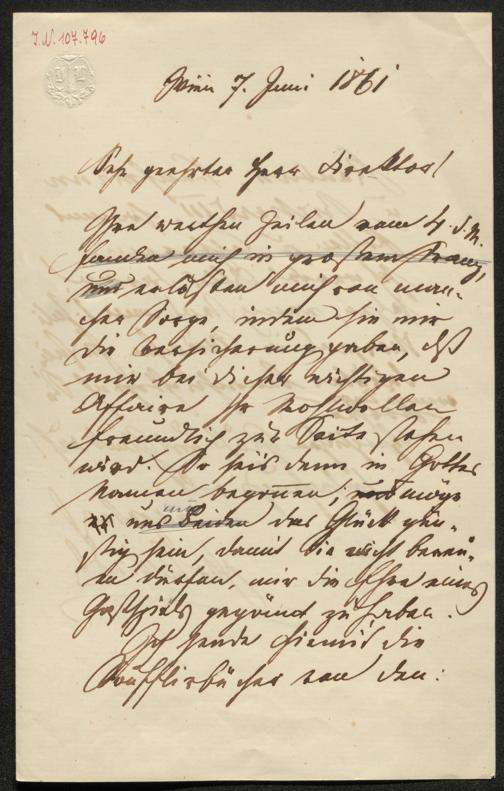 J.N. 107.796
Wien 7. Juni 1861
Sehr geehrter Herr Direktor!
Ihre werthen Zeilen vom 4. d. M.
fanden mich in großem Drang,
und erlösten mich von man-
cher Sorge, indem Sie mir
die Versicherung gaben, daß
mir bei dieser wichtigen
Affaire Ihr Wohlwollen
freundlich zur Seite stehen
wird. So sei's denn in Gottes
Namen begonnen; und möge
uns Beiden das Glück gün-
stig sein, damit Sie nicht bereu-
en dürfen, mir die Ehre eines
Gastspiels gegönnt zu haben.
Ich sende hiemit die
Soufflirbücher von den: